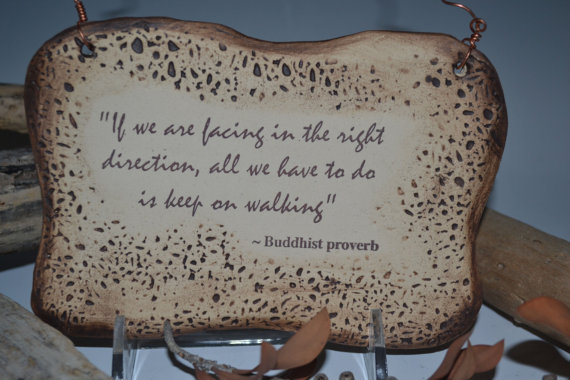 "If we are facing in the right
direction, all we have to do
is keep on walking"
~ Buddhist proverb